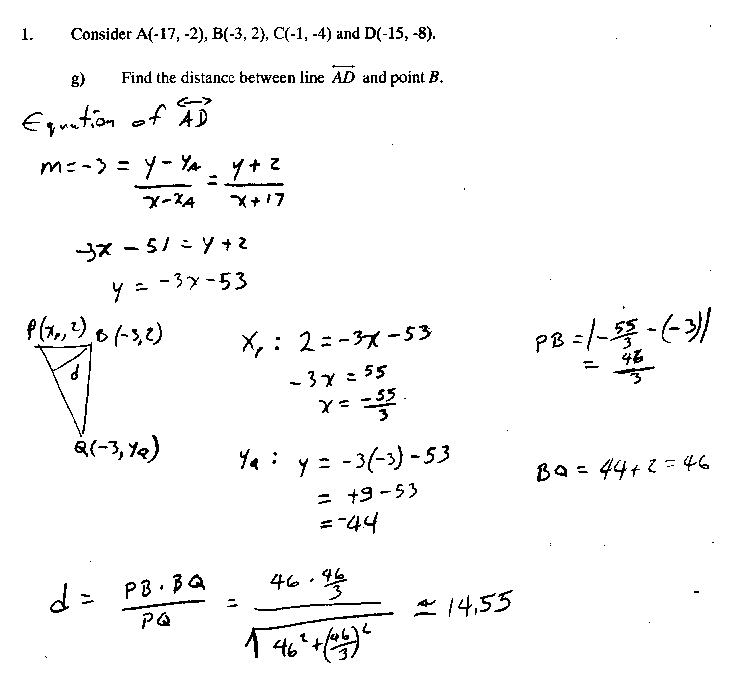 1. Consider A(-17, -2), B(-3, 2), C(-1, -4) and D(-15, -8).
g) Find the distance between line AD and point B.
Equation of AD
m = -3 = (y - yA)/(x - xA) = (y + 2)/(x + 17)
-3x - 51 = y + 2
y = -3x - 53
P(xp, 2) B(-3, 2)
d
Q(-3, yQ)
xp : 2 = -3x - 53
-3x = 55
x = -55/3
PB = |-55/3 - (-3)|
= 46/3
yQ : y = -3(-3) - 53
= +9 - 53
= -44
BQ = 44 + 2 = 46
d = PB · BQ / PQ = 46 · 46/3 / √(46² + (46/3)²) ≃ 14,55